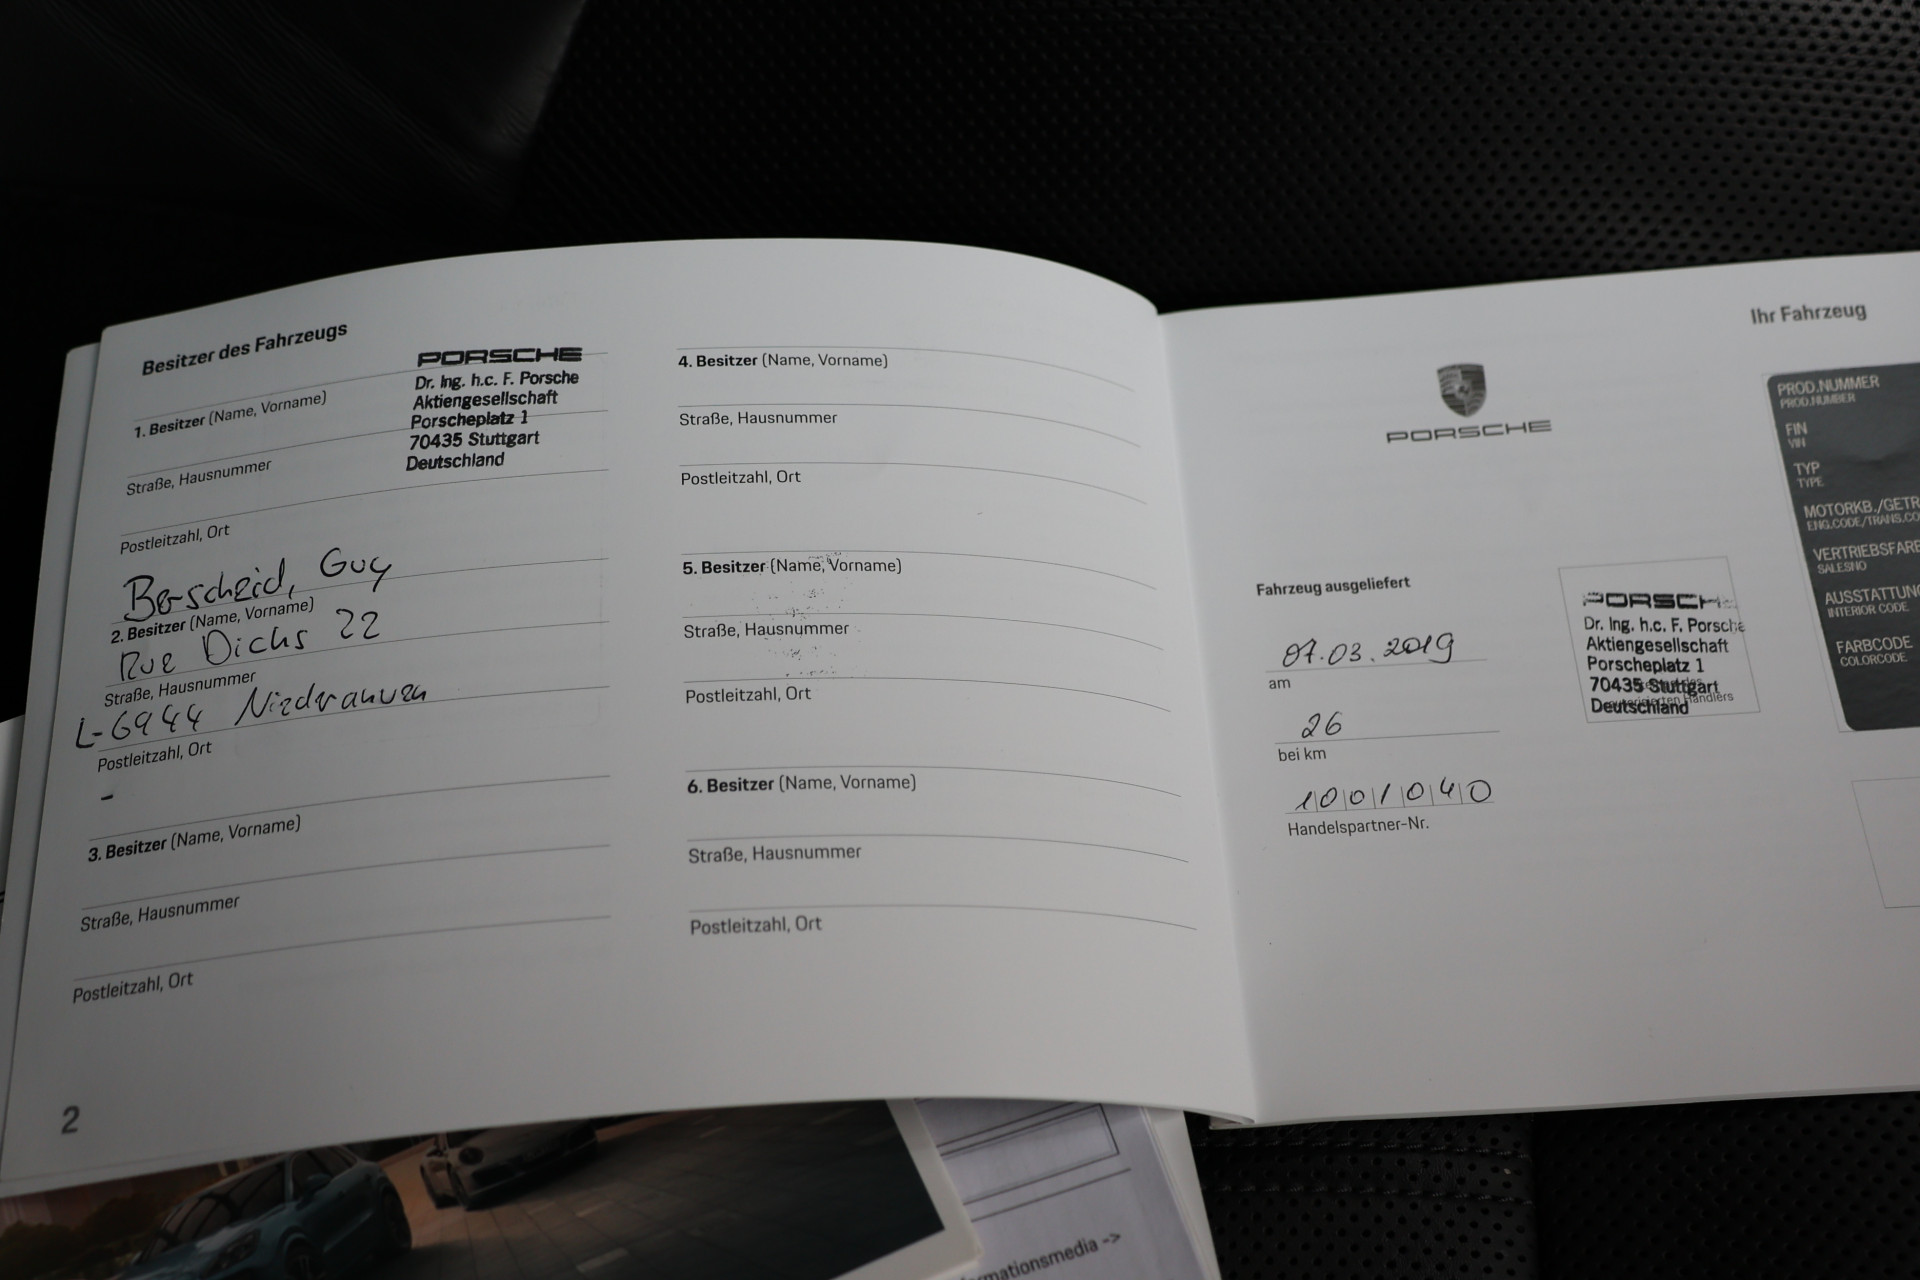 Besitzer des Fahrzeugs
PORSCHE
Dr. Ing. h.c. F. Porsche
Aktiengesellschaft
Porscheplatz 1
70435 Stuttgart
Deutschland
1. Besitzer (Name, Vorname)
Straße, Hausnummer
Postleitzahl, Ort
Berscheid, Guy
2. Besitzer (Name, Vorname)
Rue Dicks 22
Straße, Hausnummer
L-6944 Niederanven
Postleitzahl, Ort
-
3. Besitzer (Name, Vorname)
Straße, Hausnummer
Postleitzahl, Ort
2
4. Besitzer (Name, Vorname)
Straße, Hausnummer
Postleitzahl, Ort
5. Besitzer (Name, Vorname)
Straße, Hausnummer
Postleitzahl, Ort
6. Besitzer (Name, Vorname)
Straße, Hausnummer
Postleitzahl, Ort
Ihr Fahrzeug
PORSCHE
Fahrzeug ausgeliefert
07.03.2019
am
26
bei km
1001040
Handelspartner-Nr.
PORSCHE
Dr. Ing. h.c. F. Porsche
Aktiengesellschaft
Porscheplatz 1
70435 Stuttgart
Deutschland
Händlers
PROD.NUMMER
PROD.NUMBER
FIN
VIN
TYP
TYPE
MOTORKB./GETR
ENG.CODE/TRANS.CO
VERTRIEBSFARE
SALESNO
AUSSTATTUNG
INTERIOR CODE
FARBCODE
COLORCODE
rmationsmedia ->